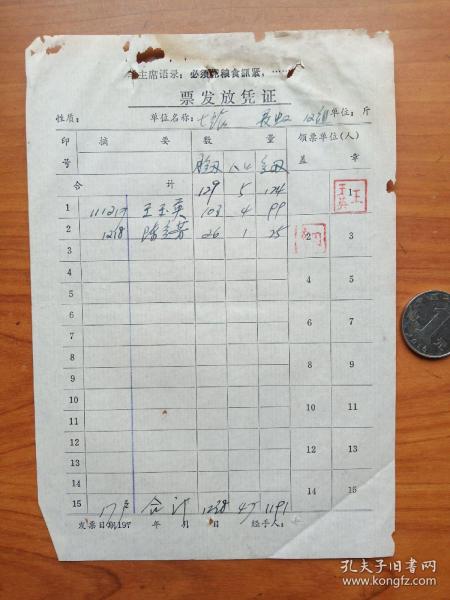 主席语录：必须把粮食抓紧，……
票发放凭证
性质： 单位名称： 单位：斤
印号 摘 要 数 量 领票单位(人)盖 章
合 计 129 5 124
1 111217 王玉英 103 4 99 1
2 1218 26 1 25 2 3
3
4 4 5
5
6 6 7
7
8 8 9
9
10 10 11
11
12 12 13
13
14 14 15
15 17户 合计 1238 47 1191
发票日期197 年 月 日 经手人：
孔夫子旧书网
www.kongfz.com